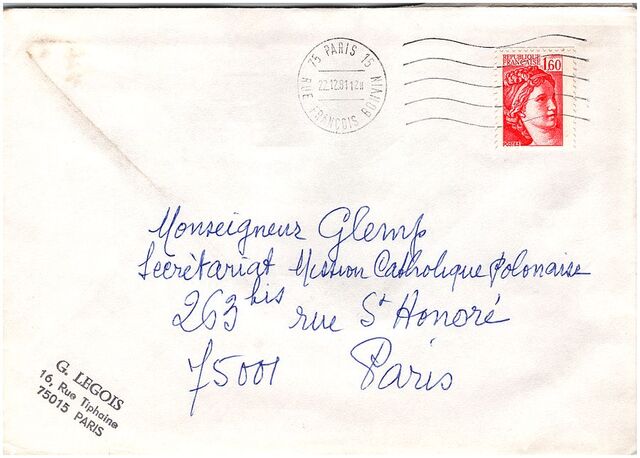 75 PARIS 15
RUE FRANÇOIS BONVIN
22.12.81 12H
REPUBLIQUE
FRANÇAISE
1,60
POSTES
Monseigneur Glemp
Secrétariat Mission Catholique Polonaise
263 bis rue St Honoré
75001 Paris
G. LEGOIS
16, Rue Tiphaine
75015 PARIS